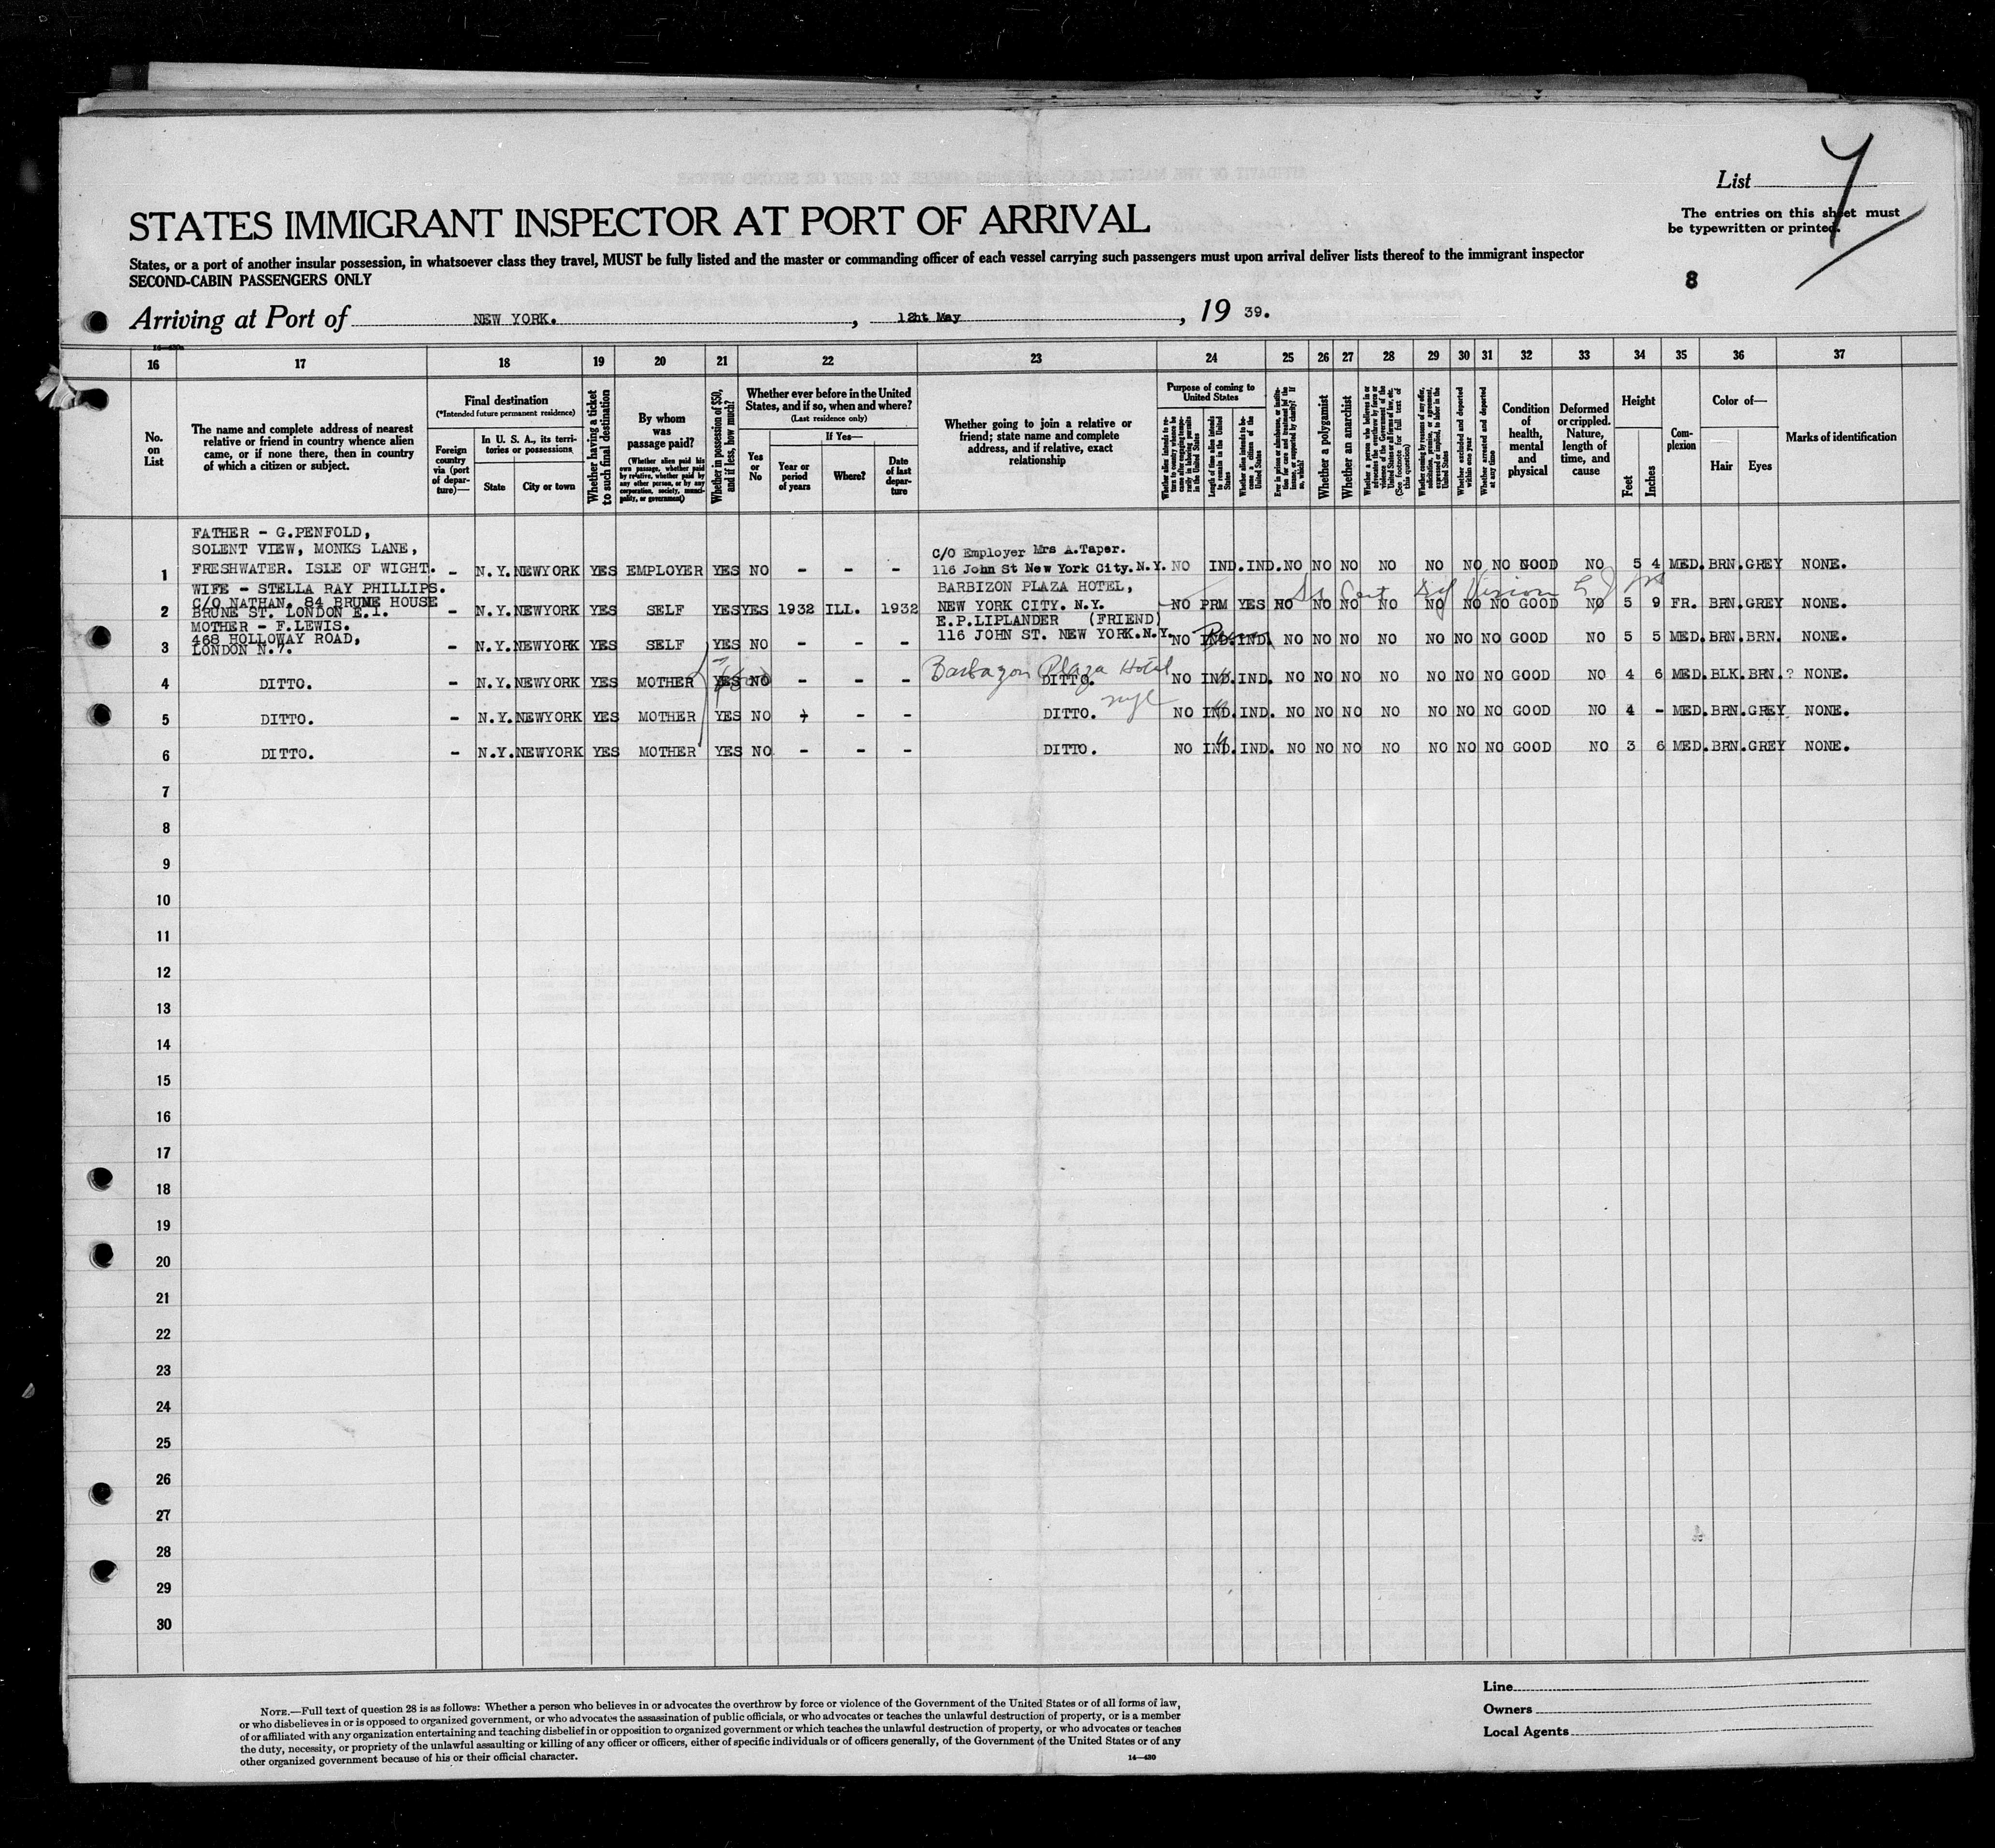 List 7
The entries on this sheet must
be typewritten or printed.
STATES IMMIGRANT INSPECTOR AT PORT OF ARRIVAL
States, or a port of another insular possession, in whatsoever class they travel, MUST be fully listed and the master or commanding officer of each vessel carrying such passengers must upon arrival deliver lists thereof to the immigrant inspector
SECOND-CABIN PASSENGERS ONLY
8
Arriving at Port of NEW YORK. , 12ht May , 19 39.
16 17 18 19 20 21 22 23 24 25 26 27 28 29 30 31 32 33 34 35 36 37
No. on List
The name and complete address of nearest
relative or friend in country whence alien
came, or if none there, then in country
of which a citizen or subject.
Final destination
(*Intended future permanent residence)
Foreign country via (port of departure)—
In U. S. A., its territories or possessions
State
City or town
Whether having a ticket to such final destination
By whom was passage paid?
(Whether alien paid his own passage, whether paid by relative, whether paid by any other person, or by any corporation, society, municipality, or government)
Whether in possession of $50, and if less, how much?
Whether ever before in the United
States, and if so, when and where?
(Last residence only)
Yes or No
If Yes—
Year or period of years
Where?
Date of last departure
Whether going to join a relative or
friend; state name and complete
address, and if relative, exact
relationship
Purpose of coming to
United States
Length of time alien intends to remain in the United States
Whether alien intends to become a citizen of the United States
Whether a polygamist
Whether an anarchist
Whether excluded and deported within one year
Whether arrested and deported at any time
Condition of health, mental and physical
Deformed or crippled. Nature, length of time, and cause
Height
Feet
Inches
Complexion
Color of—
Hair
Eyes
Marks of identification
FATHER - G.PENFOLD,
SOLENT VIEW, MONKS LANE,
C/O Employer Mrs A.Taper.
1 FRESHWATER. ISLE OF WIGHT. - N.Y. NEWYORK YES EMPLOYER YES NO - - - 116 John St New York City. N.Y. NO IND. IND. NO NO NO NO NO NO NO GOOD NO 5 4 MED. BRN. GREY NONE.
WIFE - STELLA RAY PHILLIPS.
BARBIZON PLAZA HOTEL,
C/O NATHAN. 84 BRUNE HOUSE
2 BRUNE ST. LONDON E.1. - N.Y. NEWYORK YES SELF YES YES 1932 ILL. 1932 NEW YORK CITY. N.Y. NO PRM YES NO NO NO NO NO NO NO GOOD NO 5 9 FR. BRN. GREY NONE.
MOTHER - F.LEWIS.
E.P.LIPLANDER (FRIEND)
468 HOLLOWAY ROAD,
3 LONDON N.7. - N.Y. NEWYORK YES SELF YES NO - - - 116 JOHN ST. NEW YORK. N.Y. NO IND. IND. NO NO NO NO NO NO NO GOOD NO 5 5 MED. BRN. BRN. NONE.
Barbazon Plaza Hotel
4 DITTO. - N.Y. NEWYORK YES MOTHER YES NO - - - DITTO. NO IND. IND. NO NO NO NO NO NO NO GOOD NO 4 6 MED. BLK. BRN. ? NONE.
nyc
5 DITTO. - N.Y. NEWYORK YES MOTHER YES NO - - - DITTO. NO IND. IND. NO NO NO NO NO NO NO GOOD NO 4 - MED. BRN. GREY NONE.
6 DITTO. - N.Y. NEWYORK YES MOTHER YES NO - - - DITTO. NO IND. IND. NO NO NO NO NO NO NO GOOD NO 3 6 MED. BRN. GREY NONE.
7
8
9
10
11
12
13
14
15
16
17
18
19
20
21
22
23
24
25
26
27
28
29
30
NOTE.—Full text of question 28 is as follows: Whether a person who believes in or advocates the overthrow by force or violence of the Government of the United States or of all forms of law,
or who disbelieves in or is opposed to organized government, or who advocates the assassination of public officials, or who advocates or teaches the unlawful destruction of property, or is a member
of or affiliated with any organization entertaining and teaching disbelief in or opposition to organized government or which teaches the unlawful destruction of property, or who advocates or teaches
the duty, necessity, or propriety of the unlawful assaulting or killing of any officer or officers, either of specific individuals or of officers generally, of the Government of the United States or of any
other organized government because of his or their official character.
14—430
Line
Owners
Local Agents